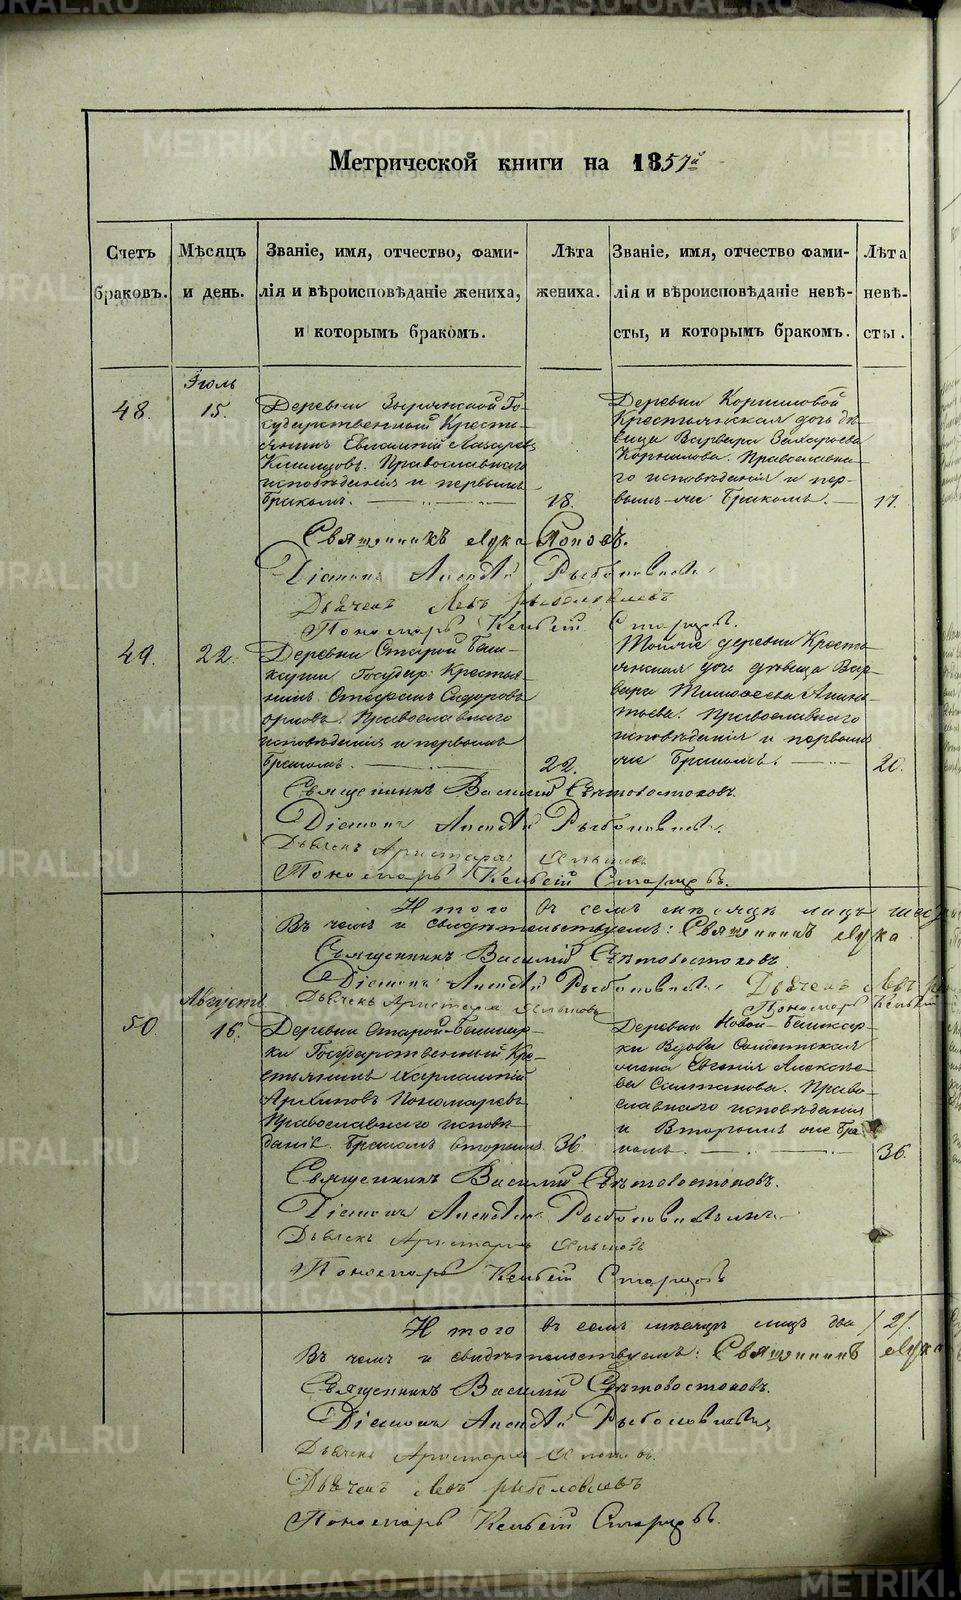 Метрической книги на 1857й
Счетъ браковъ.
Мѣсяцъ и день.
Званіе, имя, отчество, фами-
лія и вѣроисповѣданіе жениха,
и которымъ бракомъ.
Лѣта жениха.
Званіе, имя, отчество фами-
лія и вѣроисповѣданіе невѣ-
сты, и которымъ бракомъ.
Лѣта невѣ-
сты.
48.
Іюль
15.
Деревни Зырянской Го-
сударственный Кресть-
янинъ Евлампій Лазаревъ
Православнаго
исповѣданія и первымъ
бракомъ.
18.
Деревни Корниловой
Крестьянская дочь дѣ-
вица Варвара Захарова
Корнилова. Православна-
го исповѣданія и пер-
вымъ же бракомъ.
17.
Священникъ Лука Поповъ.
Діаконъ
Дьячекъ Левъ Рыболовлевъ
Пономарь Старцевъ.
49.
22.
Деревни Старой Баш-
карки Государ. Крестья-
нинъ Стефанъ Сидоровъ
Орловъ. Православнаго
исповѣданія и первымъ
бракомъ.
22.
Той же деревни Кресть-
янская дочь дѣвица Вар-
вара Тимофеева
Православнаго
исповѣданія и первымъ
же бракомъ.
20.
Священникъ Василій Свѣтовостоковъ.
Діаконъ
Дьячекъ Аристархъ
Пономарь Старцевъ.
Итого въ семъ мѣсяцѣ лицъ
Въ чемъ и свидѣтельствуемъ: Священникъ Лука
Священникъ Василій Свѣтовостоковъ
Діаконъ Дьячекъ Левъ
Дьячекъ Аристархъ Пономарь
50.
Августъ
16.
Деревни Старой Башкар-
ки Государственный Кре-
стьянинъ Харлампій
Архиповъ Пономаревъ
Православнаго исповѣ-
данія. Бракомъ вторымъ
36.
Деревни Новой Башкар-
ки Вдова Солдатская
жена Евгенія Алексѣе-
ва Салтанова. Право-
славнаго исповѣданія
и Вторымъ же бра-
комъ.
36.
Священникъ Василій Свѣтовостоковъ.
Діаконъ
Дьячекъ Аристархъ
Пономарь Старцевъ
Итого въ семъ мѣсяцѣ лицъ два /2/.
Въ чемъ и свидѣтельствуемъ: Священникъ Лука
Священникъ Василій Свѣтовостоковъ.
Діаконъ
Дьячекъ Аристархъ
Дьячекъ Левъ Рыболовлевъ
Пономарь Старцевъ.
METRIKI.GASO-URAL.RU